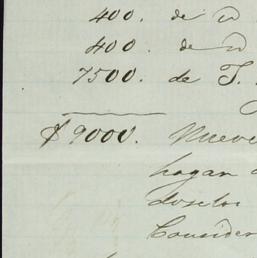 400. de
400. de
7500. de T.
$ 9000. Nueve
hagan
doselos
Consider